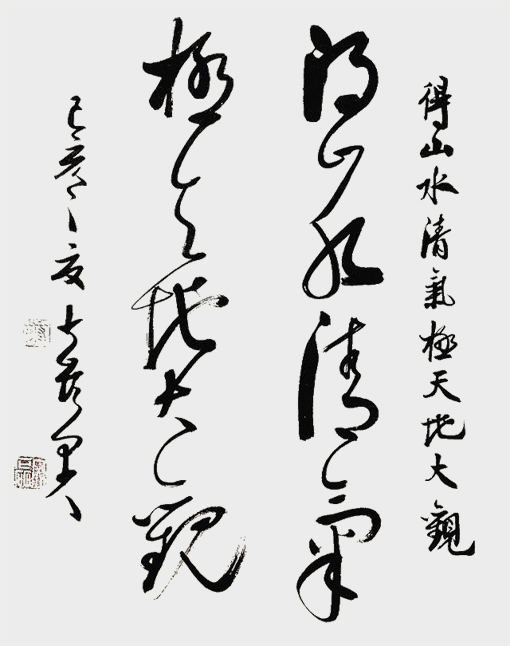 得山水清氣極天地大觀
得山水清氣
極天地大觀
己亥之夏